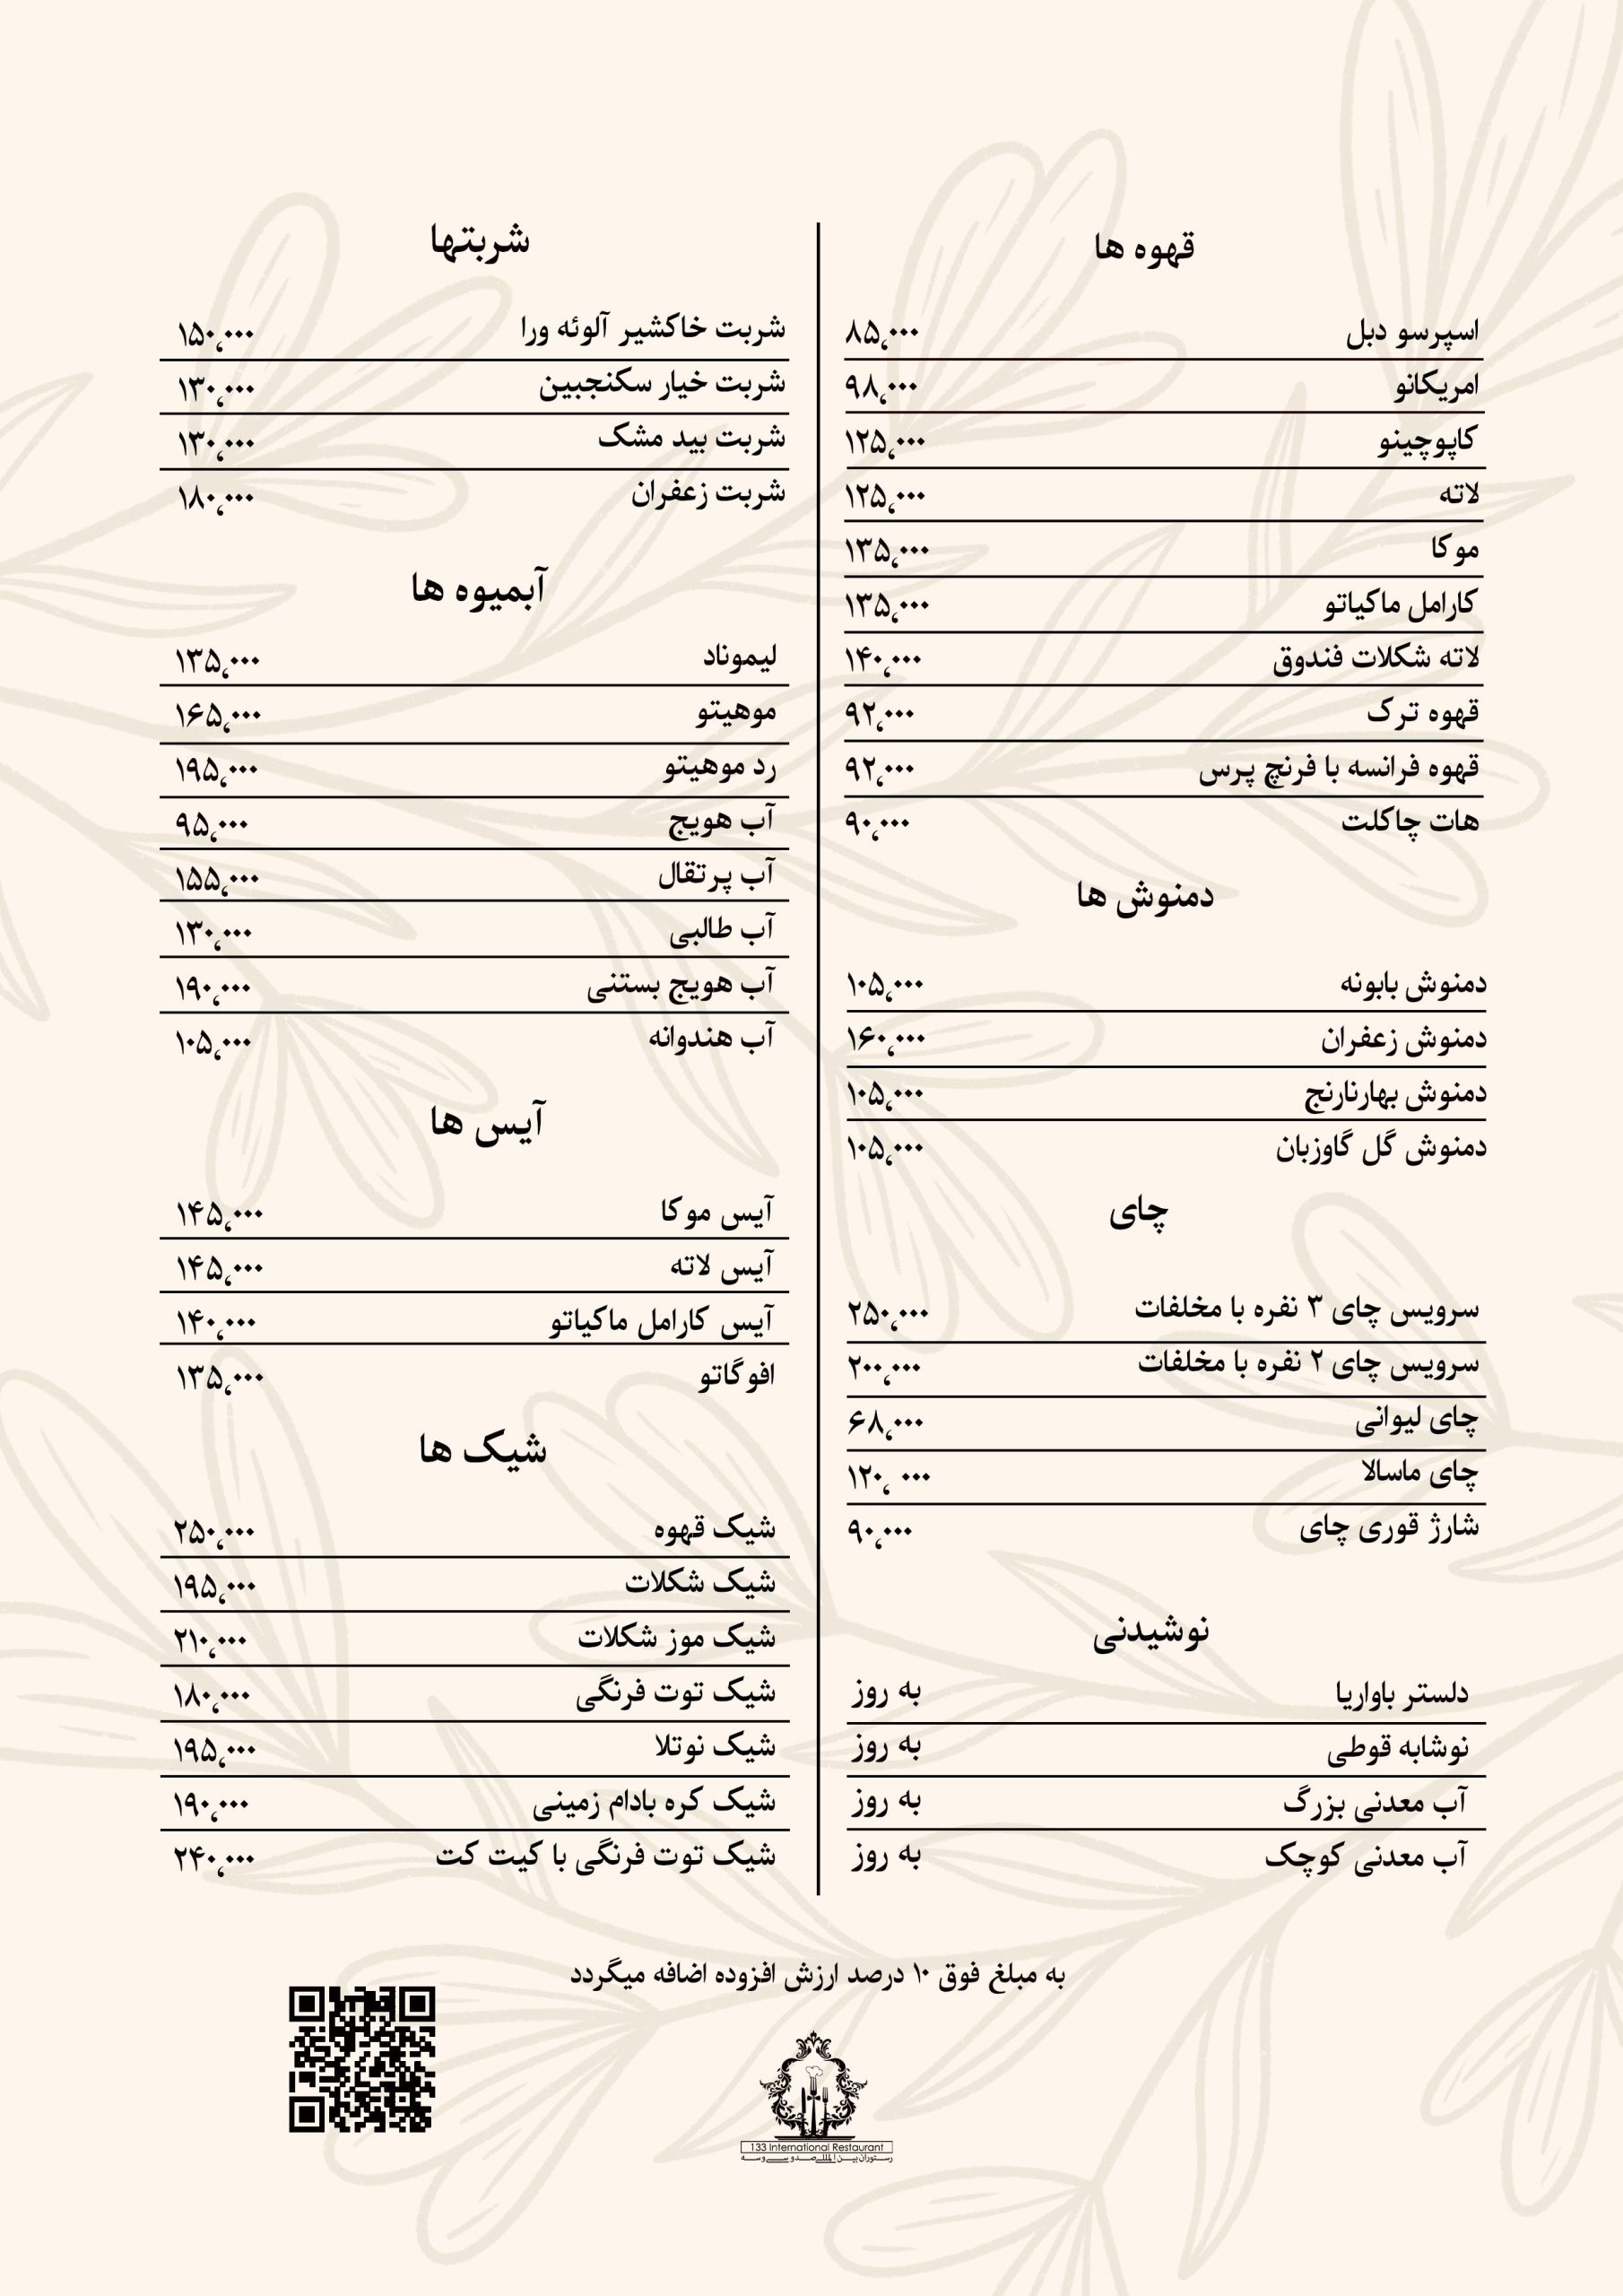 قهوه ها
اسپرسو دبل ۸۵,۰۰۰
امریکانو ۹۸,۰۰۰
کاپوچینو ۱۲۵,۰۰۰
لاته ۱۲۵,۰۰۰
موکا ۱۳۵,۰۰۰
کارامل ماکیاتو ۱۳۵,۰۰۰
لاته شکلات فندوق ۱۴۰,۰۰۰
قهوه ترک ۹۲,۰۰۰
قهوه فرانسه با فرنچ پرس ۹۲,۰۰۰
هات چاکلت ۹۰,۰۰۰
دمنوش ها
دمنوش بابونه ۱۰۵,۰۰۰
دمنوش زعفران ۱۶۰,۰۰۰
دمنوش بهارنارنج ۱۰۵,۰۰۰
دمنوش گل گاوزبان ۱۰۵,۰۰۰
چای
سرویس چای ۳ نفره با مخلفات ۲۵۰,۰۰۰
سرویس چای ۲ نفره با مخلفات ۲۰۰,۰۰۰
چای لیوانی ۶۸,۰۰۰
چای ماسالا ۱۲۰, ۰۰۰
شارژ قوری چای ۹۰,۰۰۰
نوشیدنی
دلستر باواریا به روز
نوشابه قوطی به روز
آب معدنی بزرگ به روز
آب معدنی کوچک به روز
شربتها
شربت خاکشیر آلوئه ورا ۱۵۰,۰۰۰
شربت خیار سکنجبین ۱۳۰,۰۰۰
شربت بید مشک ۱۳۰,۰۰۰
شربت زعفران ۱۸۰,۰۰۰
آبمیوه ها
لیموناد ۱۳۵,۰۰۰
موهیتو ۱۶۵,۰۰۰
رد موهیتو ۱۹۵,۰۰۰
آب هویج ۹۵,۰۰۰
آب پرتقال ۱۵۵,۰۰۰
آب طالبی ۱۳۰,۰۰۰
آب هویج بستنی ۱۹۰,۰۰۰
آب هندوانه ۱۰۵,۰۰۰
آیس ها
آیس موکا ۱۴۵,۰۰۰
آیس لاته ۱۴۵,۰۰۰
آیس کارامل ماکیاتو ۱۴۰,۰۰۰
افوگاتو ۱۳۵,۰۰۰
شیک ها
شیک قهوه ۲۵۰,۰۰۰
شیک شکلات ۱۹۵,۰۰۰
شیک موز شکلات ۲۱۰,۰۰۰
شیک توت فرنگی ۱۸۰,۰۰۰
شیک نوتلا ۱۹۵,۰۰۰
شیک کره بادام زمینی ۱۹۰,۰۰۰
شیک توت فرنگی با کیت کت ۲۴۰,۰۰۰
به مبلغ فوق ۱۰ درصد ارزش افزوده اضافه میگردد
133 International Restaurant
رستوران بین المللی صد و سی و سه